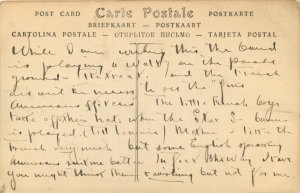 POST CARD Carte Postale POSTKARTE
BRIEFKAART — POSTKAART
CARTOLINA POSTALE — ОТКРЫТОЕ ПИСЬМО — TARJETA POSTAL
While I am writing this the Band
is playing a Waltz on the parade
ground and the French
are out en masse to see the "fine
Americans officers" The little French boys
take off their hats when the Star S— banner
is played. (Till tomorrow) Mother I like the
French very much but some English speaking
Americans suit me better In fact they say
You might think the but not for me.